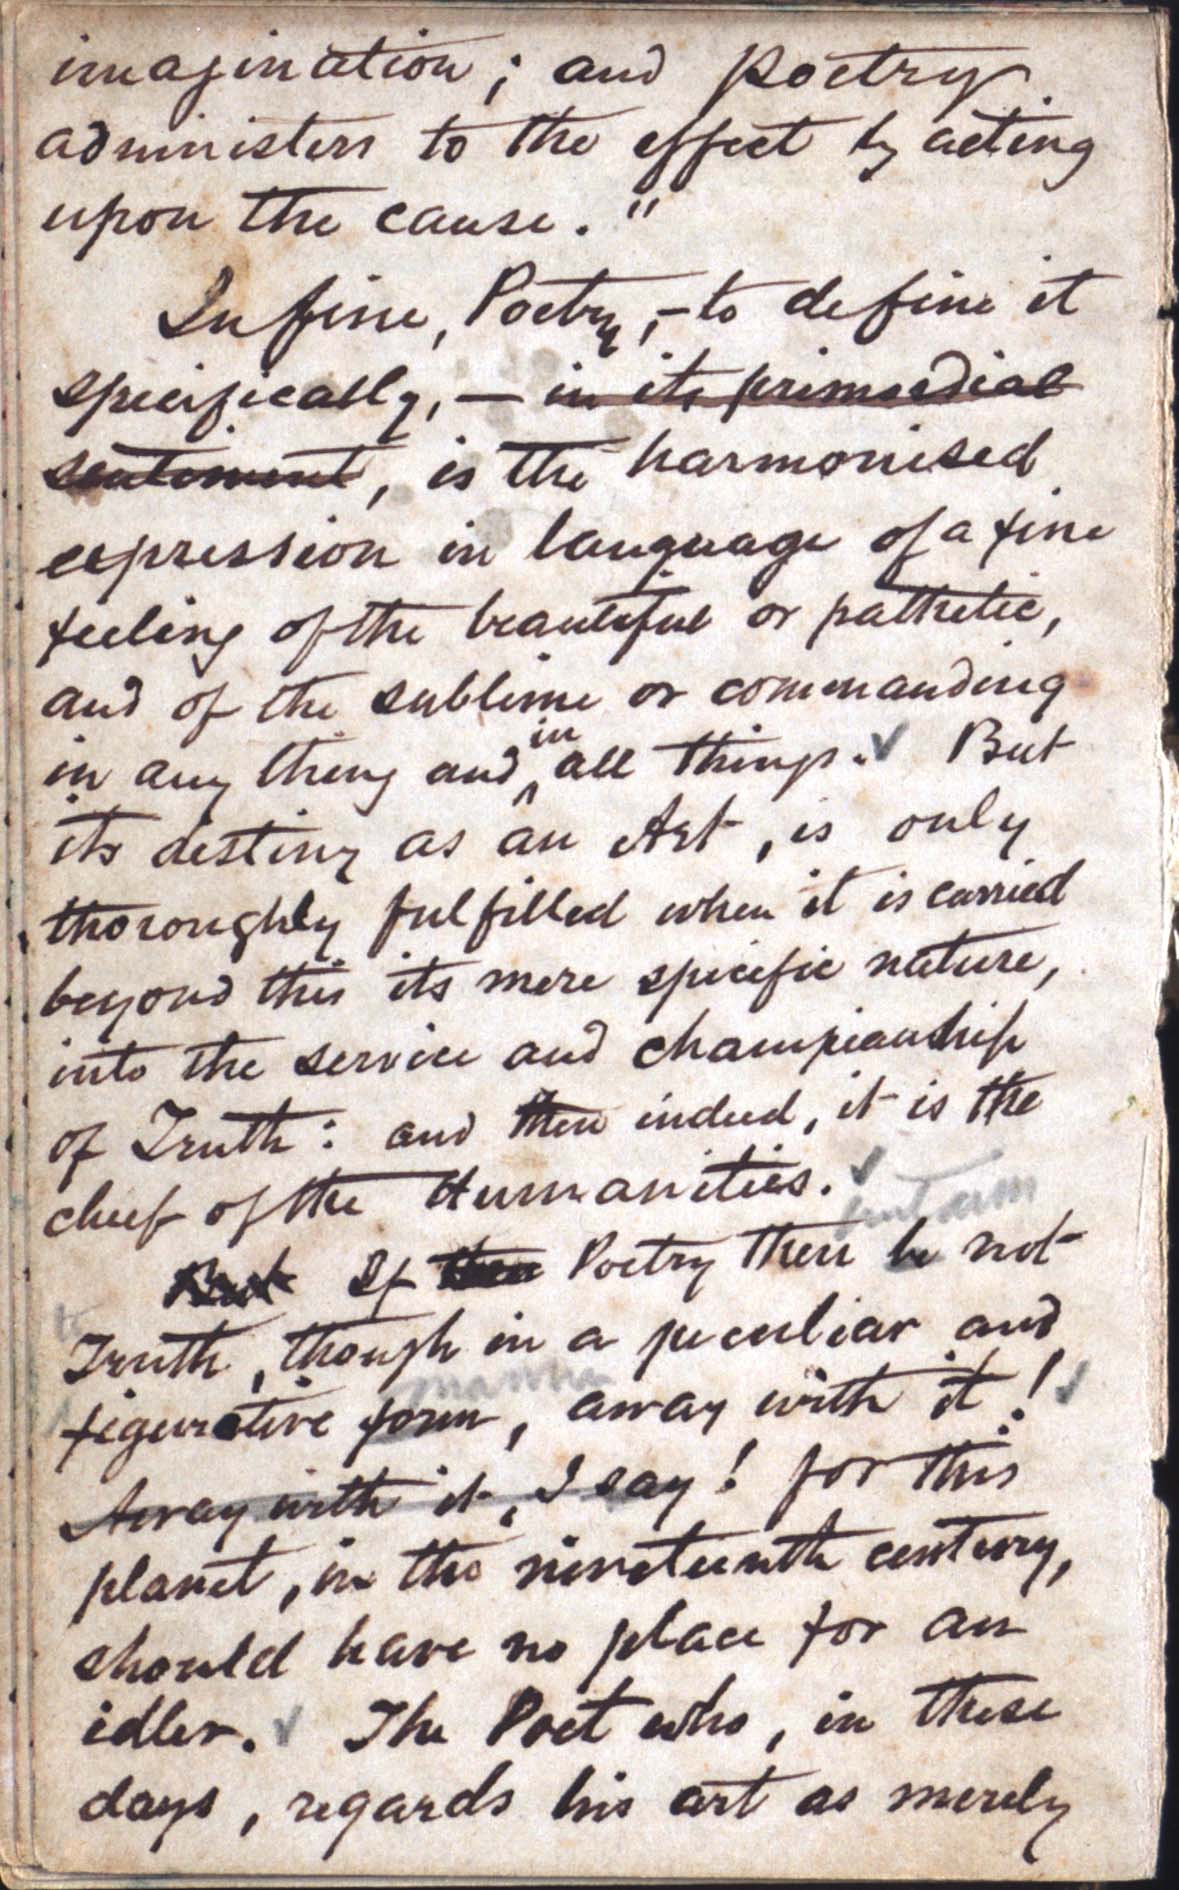 imagination; and Poetry
administers to the effect by acting
upon the cause."
In fine, Poetry, – to define it
specifically, — in its primordial
sentiment, is the harmonised
expression in language of a fine
feeling of the beautiful or pathetic,
and of the sublime or commanding
in any thing and in all things. ✓ But
its destiny as an Art, is only
thoroughly fulfilled when it is carried
beyond this its mere specific nature,
into the service and championship
of Truth: and then indeed, it is the
chief of the Humanities. ✓
But If then Poetry then be not
Truth, though in a peculiar and
manner
figurative form, away with it! ✓
Away with it, I say! for this
planet, in the nineteenth century,
should have no place for an
idler. ✓ The Poet who, in these
days, regards his art as merely